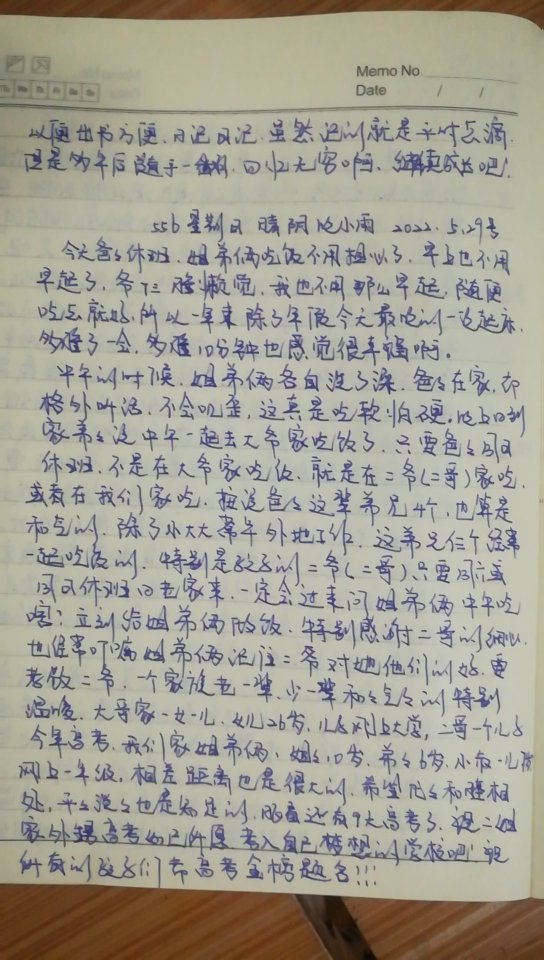 Memo No
Date / /
以便出书方便。日记日记,虽然记的就是平时点滴,
但是多年后随手一翻,回忆无穷啊,继续成长吧!
556 星期日 晴阴 晚小雨 2022.5.29号
今天爸爸休班,姐弟俩吃饭不用担心了,早上也不用
早起了,爷仨睡懒觉,我也不用那么早起,随便
吃点就好,所以一年来除了年假今天最晚的一次起床,
多睡了一会,多睡10分钟也感觉很幸福啊。
中午的时候,姐弟俩各自洗了澡,爸爸在家,却
格外听话,不会叽歪,这真是吃软怕硬,晚上回到
家弟弟说中午一起去大爷家吃饭了,只要爸爸周日
休班,不是在大爷家吃饭,就是在二爷(二哥)家吃,
或者在我们家吃,按说爸爸这辈弟兄4个,也算是
和气的,除了小大大常年外地工作,这弟兄仨个经常
一起吃饭的,特别是孩子的二爷(二哥)只要周六或
周日休班回老家来,一定会过来问姐弟俩中午吃
啥?立刻给姐弟俩做饭,特别感谢二哥的细心,
也经常叮嘱姐弟俩记住二爷对她他们的好,要
孝敬二爷,一个家族老一辈,少一辈和和气气的特别
温暖,大哥家一女一儿,女儿26岁,儿子刚上大学,二哥一个儿子
今年高考,我们家姐弟俩,姐姐10岁,弟弟6岁,小叔一儿
刚上一年级,相差距离也是很大的,希望他们和睦相
处,平平淡淡也是知足的,眼看还有9天高考了,祝二姐
家外甥高考如己所愿 考入自己梦想的学校吧!祝
所有的孩子们都高考金榜题名!!!